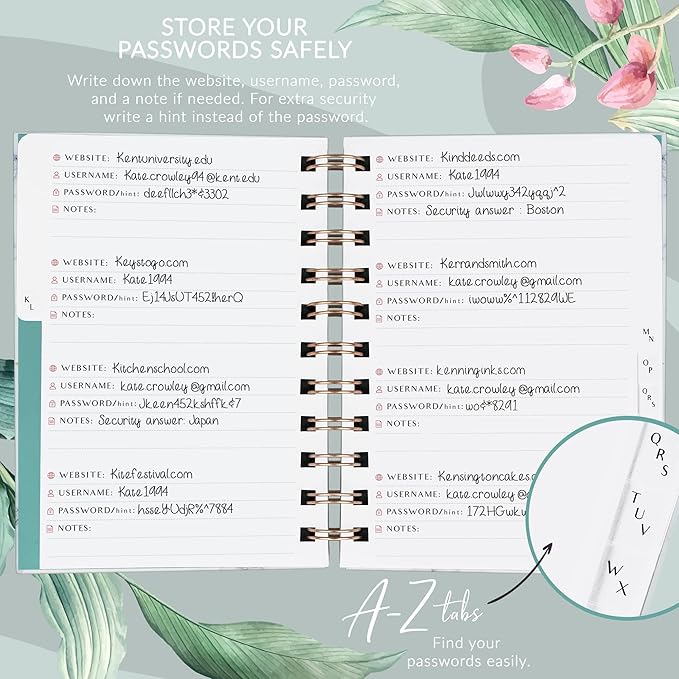 STORE YOUR
PASSWORDS SAFELY
Write down the website, username, password,
and a note if needed. For extra security
write a hint instead of the password.
WEBSITE: Kentuniversity.edu
USERNAME: Kate.crowley94@kent.edu
PASSWORD/hint: deefllch3*&3302
NOTES:
WEBSITE: Keystogo.com
USERNAME: Kate1994
PASSWORD/hint:
NOTES:
WEBSITE: Kitchenschool.com
USERNAME: kate.crowley@gmail.com
PASSWORD/hint: Jkeen452kshffk&7
NOTES: Security answer: Japan
WEBSITE: Kitefestival.com
USERNAME: Kate1994
PASSWORD/hint: hsseYUdjR%^7884
NOTES:
K
L
WEBSITE: Kinddeeds.com
USERNAME: Kate1994
PASSWORD/hint: Jwlwwy342yqqj^2
NOTES: Security answer : Boston
WEBSITE: Kerrandsmith.com
USERNAME: kate.crowley@gmail.com
PASSWORD/hint: iwoww%^112829WE
NOTES:
WEBSITE: kenninginks.com
USERNAME: kate.crowley@gmail.com
PASSWORD/hint: wo&*8291
NOTES:
WEBSITE: Kensingtoncakes.
USERNAME: kate.crowley@g
PASSWORD/hint: 172HGwk
NOTES:
M
N
O
P
Q
R
S
Q
R
S
T
U
V
W
X
A-Z tabs
Find your
passwords easily.